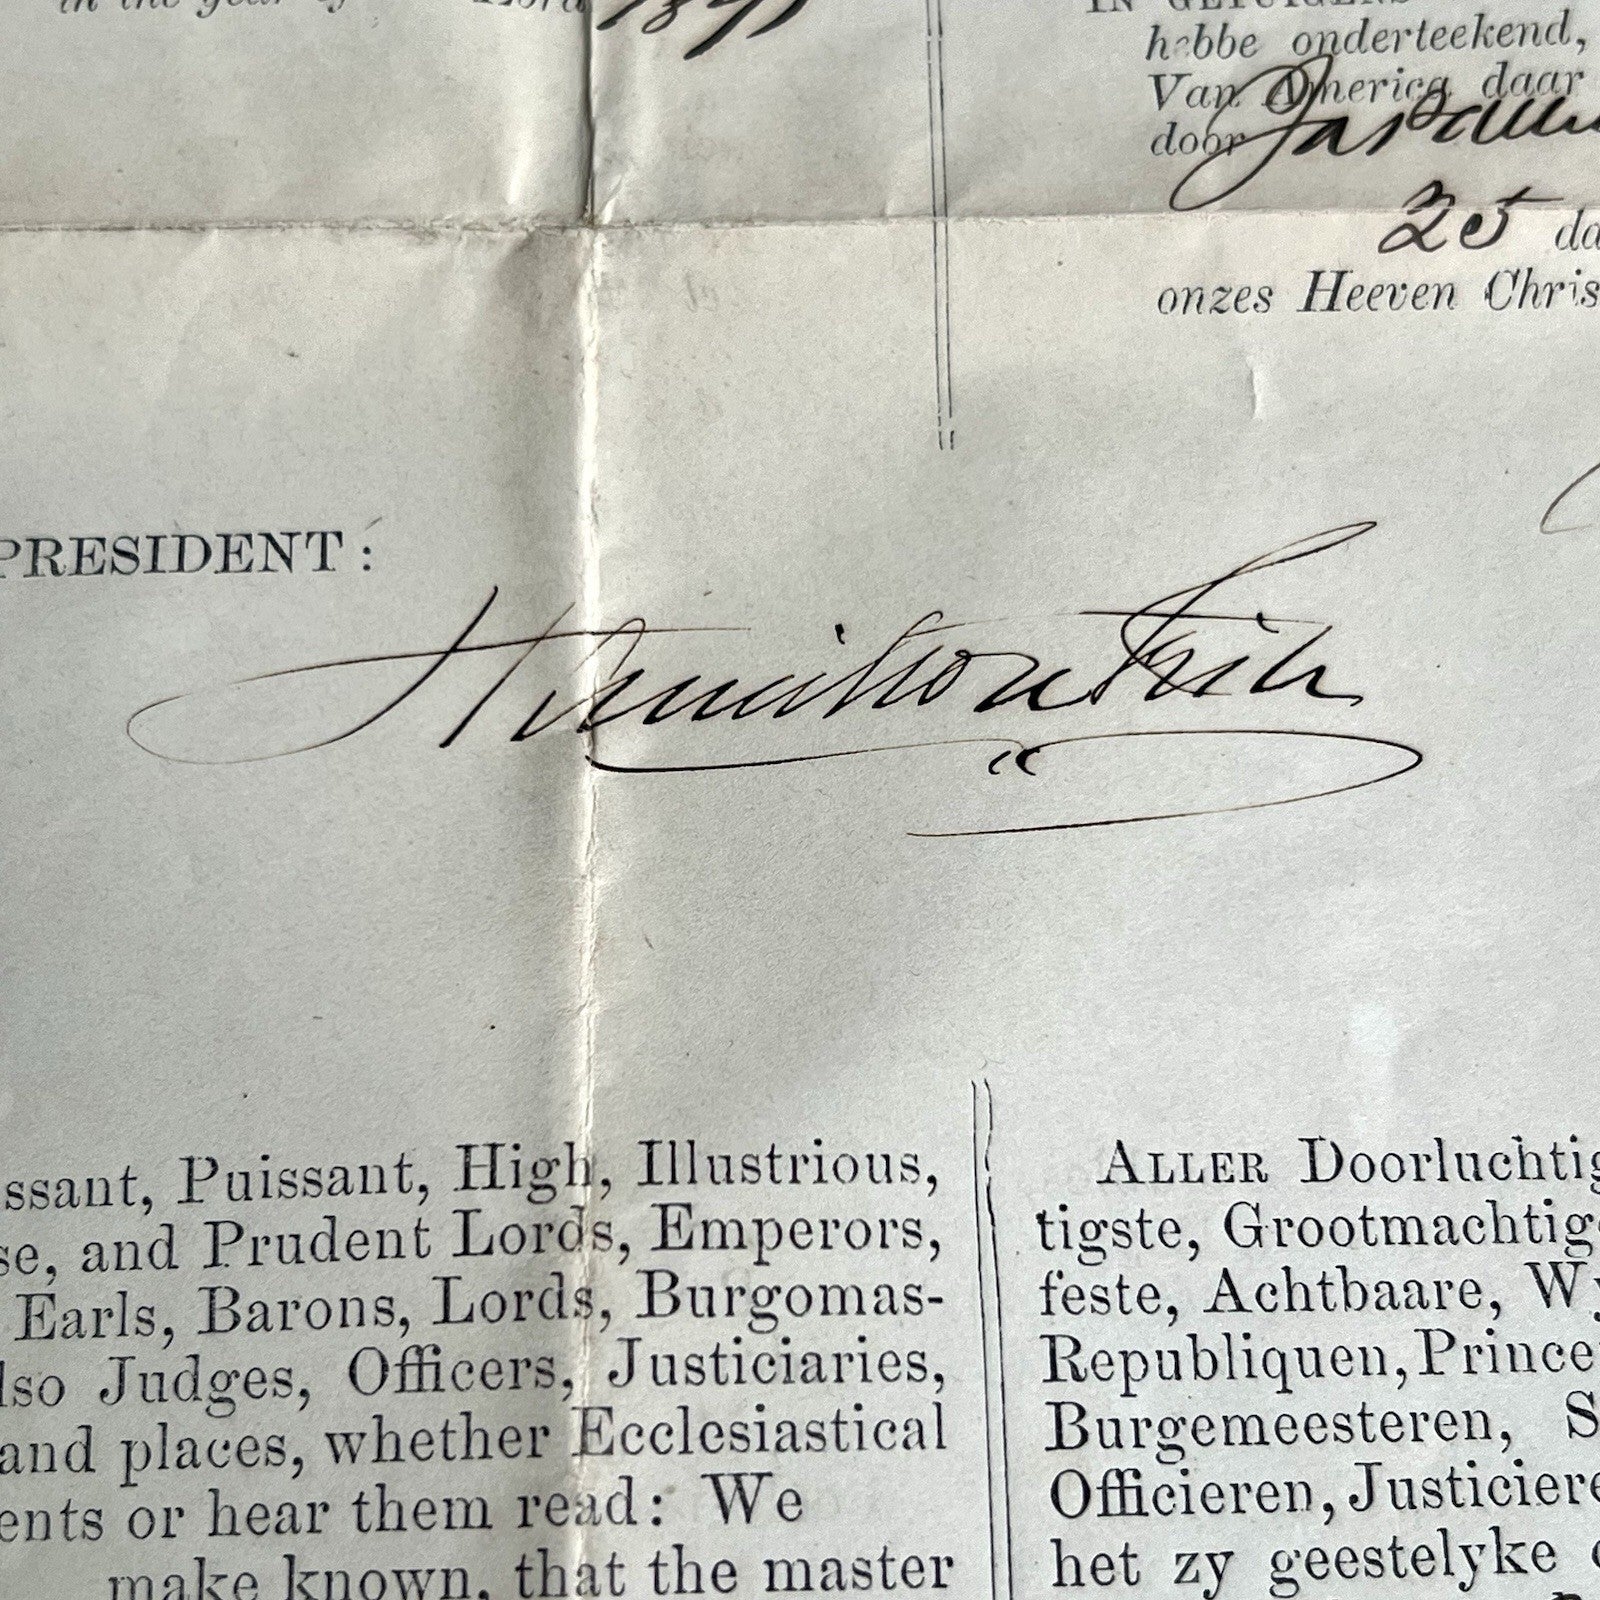 in the year of Lord 1871
IN GETUIGENS
hebbe onderteekend,
Van America daar
door
25 da
onzes Heeven Chris
PRESIDENT:
Hamilton Fish
ssant, Puissant, High, Illustrious,
se, and Prudent Lords, Emperors,
Earls, Barons, Lords, Burgomas-
lso Judges, Officers, Justiciaries,
and places, whether Ecclesiastical
ents or hear them read: We
make known, that the master
ALLER Doorluchtig
tigste, Grootmachtige
feste, Achtbaare, Wy
Republiquen, Prince
Burgemeesteren, S
Officieren, Justiciere
het zy geestelyke